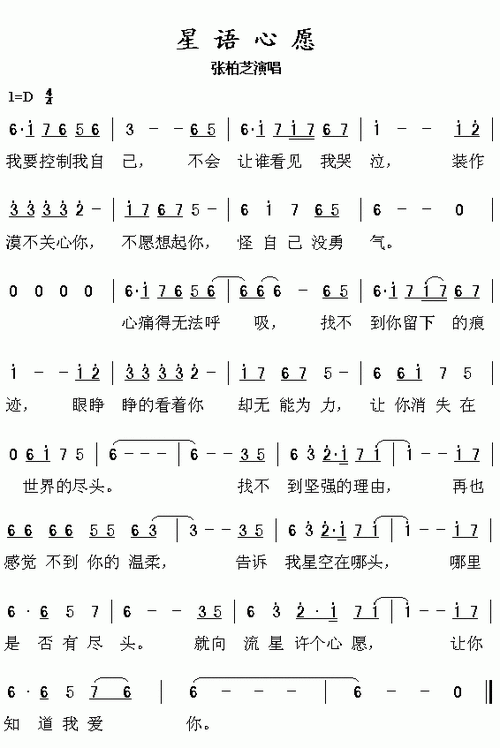 星语心愿
张柏芝演唱
1=D 4/4
6·i 7 6 5 6 | 3 - - 6 5 | 6·i 7 i 7 6 7 | i - - i 2 |
我要控制我自 己， 不会 让谁看见 我哭 泣， 装作
3 3 3 3 2 - | i 7 6 7 5 - | 6 i 7 6 5 | 6 - - 0 |
漠不关心你， 不愿想起你， 怪 自 己 没勇 气。
0 0 0 0 | 6·i 7 6 5 6 | 6 6 6 - 6 5 | 6·i 7 i 7 6 7 |
心痛得无法呼 吸， 找不 到你留下 的痕
i - - i 2 | 3 3 3 3 2 - | i 7 6 7 5 - | 6 6 i 7 5 |
迹， 眼睁 睁的看着你 却无 能为 力， 让 你消 失 在
0 6 i 7 5 | 6 - - - | 6 - - 3 5 | 6 3 2·i 7 i | i - - i 7 |
世界的尽头。 找不 到坚强的理由， 再也
6 6 6 6 5 5 6 3 | 3 - - 3 5 | 6 3 2·i 7 i | i - - i 7 |
感觉 不到 你的 温柔， 告诉 我星空在哪头， 哪里
6 · 6 5 7 | 6 - - 3 5 | 6 3 2 · i 7 i | i - - i 7 |
是 否 有 尽 头。 就向 流 星 许个心 愿， 让你
6 · 6 5 7 6 | 6 - - - | 6 - - 0 ‖
知 道 我 爱 你。